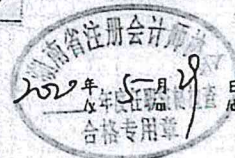 湖南省注册会计师协
2020年5月29日
/y /m /d
年度任职资格检查
合格专用章